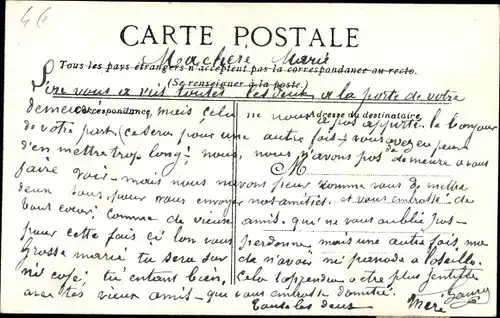 46
CARTE POSTALE
Ma chère Marie
Tous les pays étrangers n'acceptent pas la correspondance au recto.
(Se renseigner à la poste.)
vous a vis toutes les deux a la porte de votre
Correspondance
Adresse du destinataire
demeure mais cela ne nous a pas apporté le bonjour
de votre part (ce sera pour une autre fois) vous avez eu peur
d'en mettre trop long; nous, nous n'avons pas de meure a vous
M
faire voir mais nous navons peur comme vous de mettre
deux sous pour vous envoyer nos amitiés et vous
tout cœur; comme de vieux amis que ne vous oublie pas
pour cette fois ci l'on vous perdonne mais une autre fois, ma
Grosse marie tu sera sur de n'avoir ni panade a l'oseille
ni café; tu entant bien, Cela t'apprendra a etre plus gentille
avec tes vieux amis que vous d'amitié
toute les deux